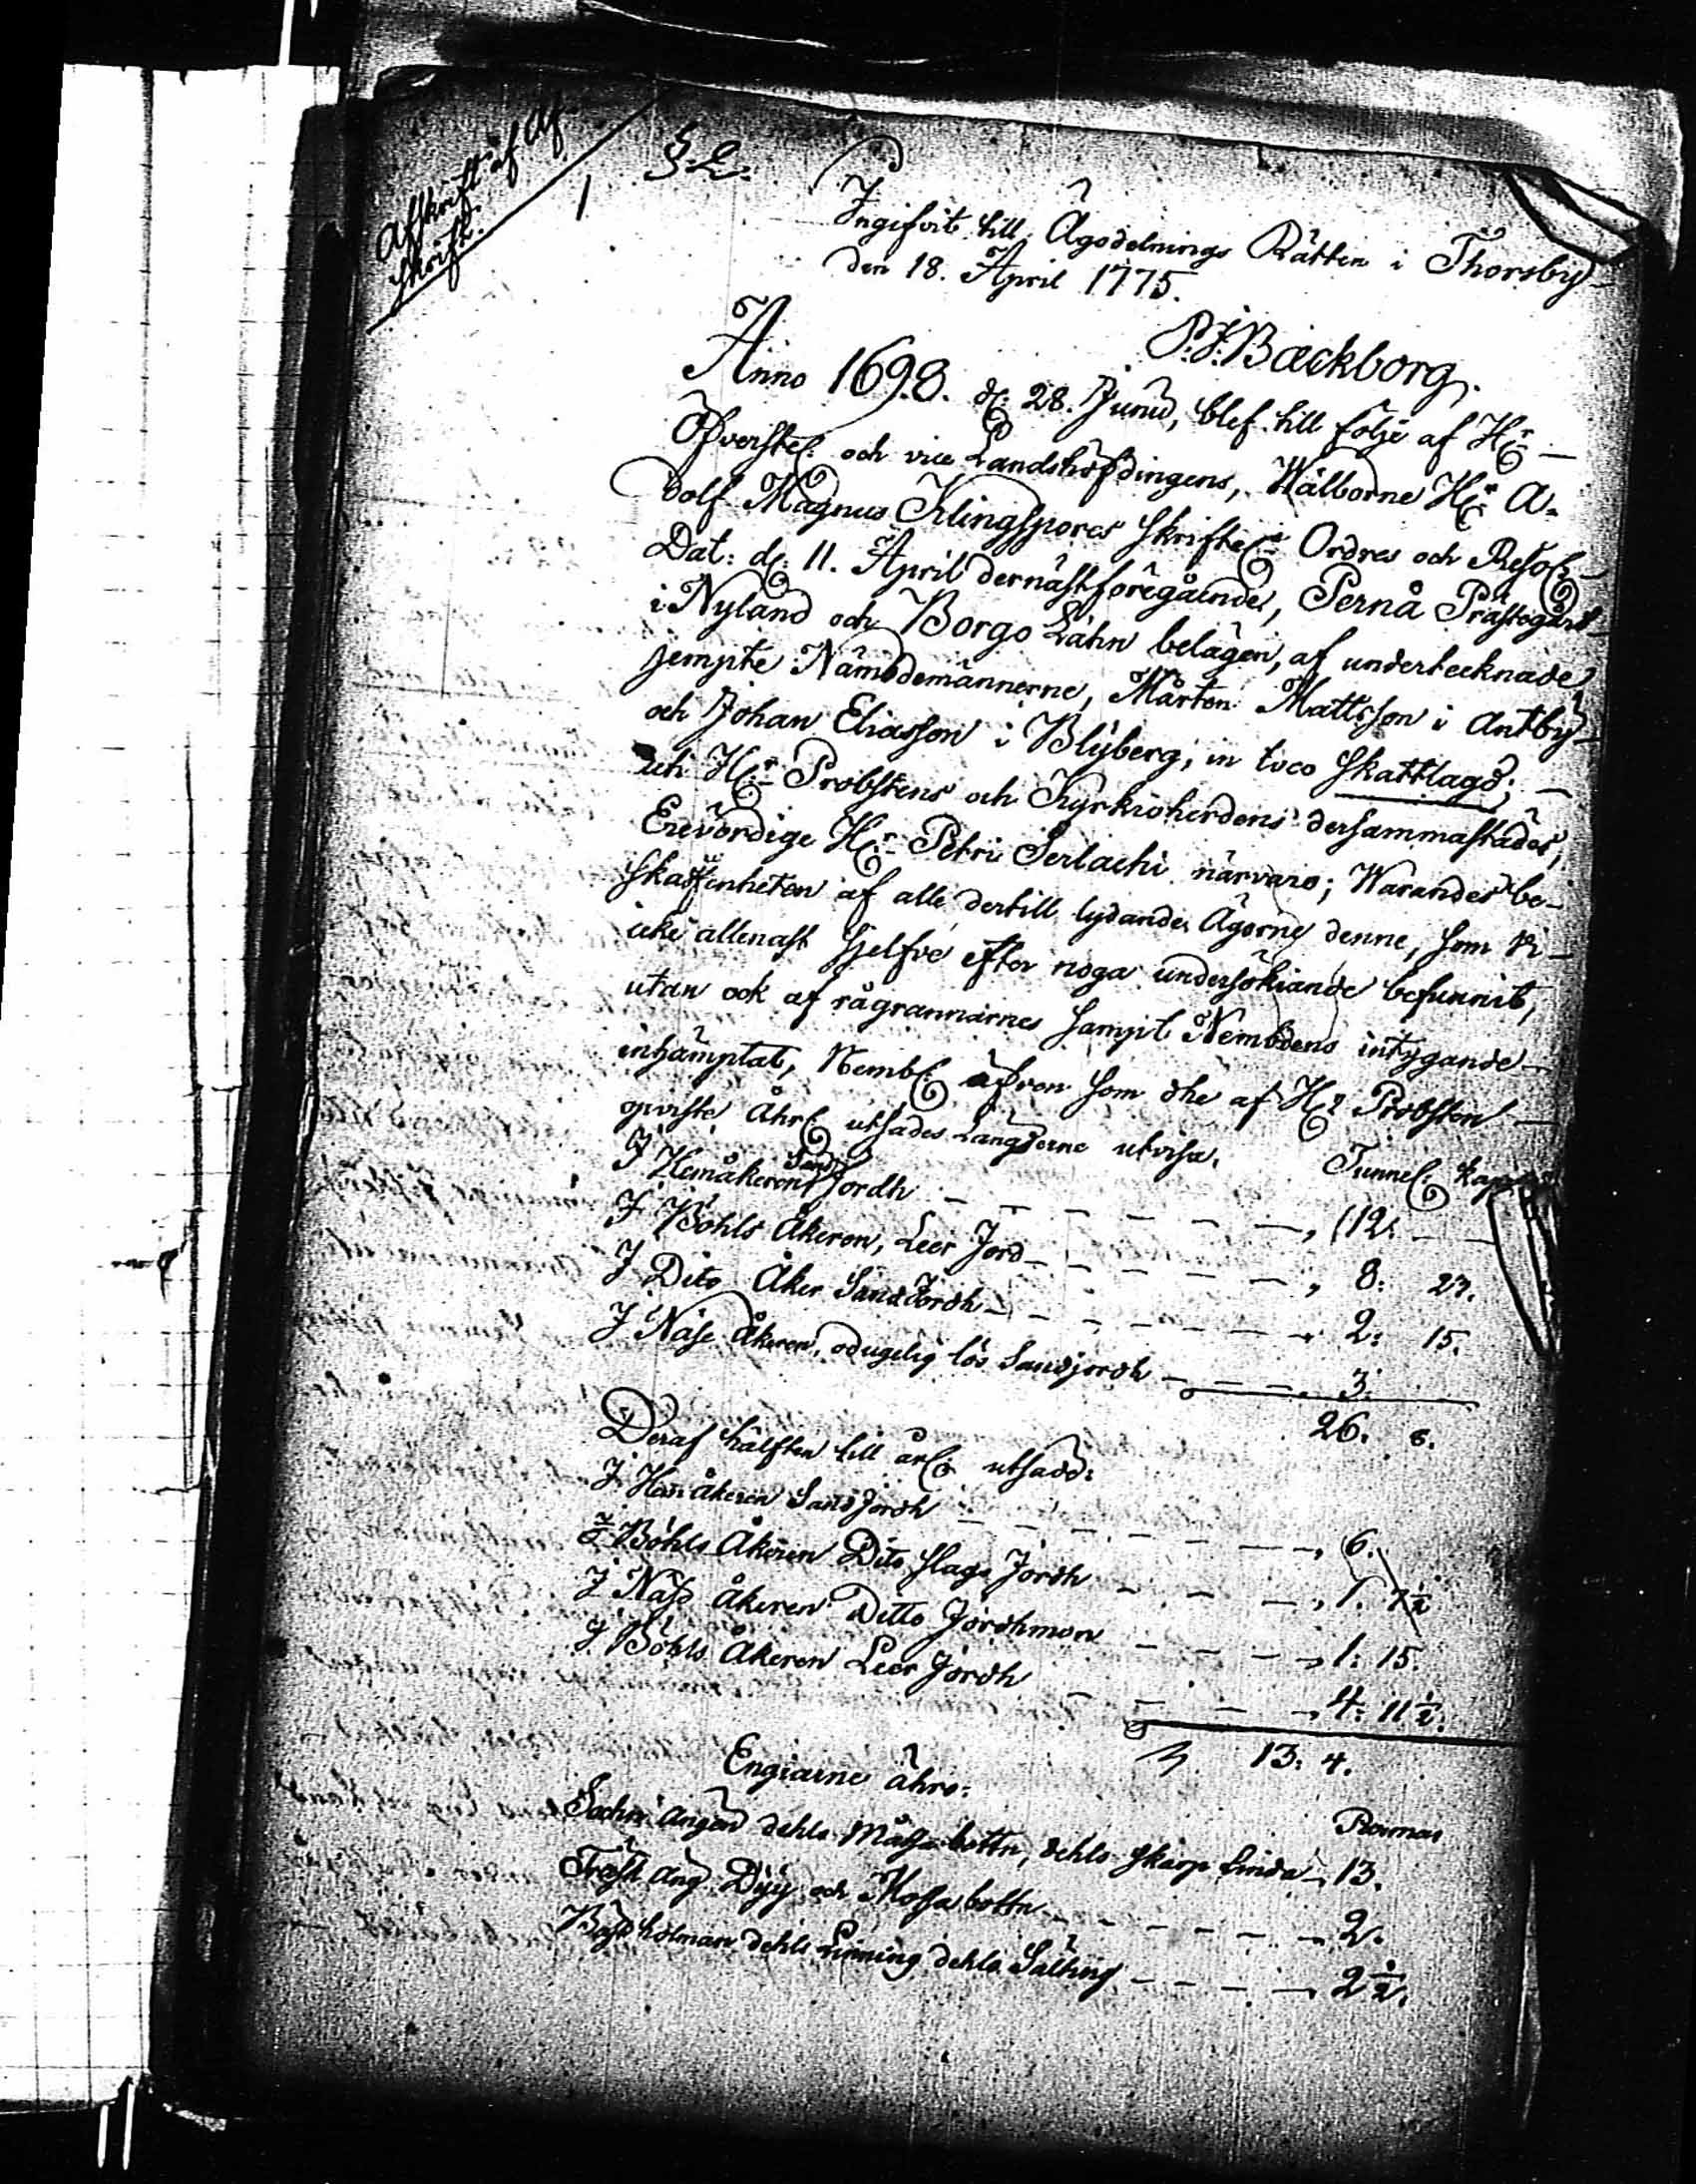 Afskrift af Af-
skrift.
§. 2.
Ingifvit till Ägodelnings Rätten i Thorsby
den 18. April 1775.
P: J: Bäckborg.
Anno 1698. d: 28. Junii, blef till följe af H:r
Öfverste: och vice Landshöfdingens, Wälborne H:r A-
dolf Magnus Klingspores skrifte: Ordres och Resol:
Dat: d: 11. April dernästföregående, Pernå Prästegård
i Nyland och Borgo Lähn belägen, af undertecknade
jempte Nämbdemännerne, Mårten Mattsson i Antby
och Johan Eliasson i Blyberg, in loco skattlagd;
uti H:r Probstens och Kyrkioherdens dersammastädes,
Erevördige H:r Petri Serlachi närvaro; Warandes be-
skaffenheten af alle dertill lydande Ägorne denne, som vi
icke allenast sjelfve efter noga undersökiande befunnit,
utan ock af rågrannarnes sampt Nembdens intygande
inhämptat, Nembl: äfven som dhe af H:r Probsten
opviste Åhrl: utsädes Längderne utvisa.
Tunne: kapp
I Hemåkeren Sand Jordh - - - - - - 12. - -
I Böhls Åkeren, Leer Jord - - - - - - 8: 23.
I Dito Åker Sand Jordh - - - - - - 2: 15.
I Näse Åkeren, odugelig lös Sandjordh - - - - 3.
26. 6.
Deraf hälften till årl: utsäde:
I Hem Åkeren Sand Jordh - - - - - - 6.
I Böhls Åkeren Dito slags Jordh - - - - 1. 7½
I Näse Åkeren Ditto Jordhmon - - - - 1: 15.
I Böhls Åkeren Leer Jordh - - - - 4: 11½.
13: 4.
Engiarne ähro:
Ängen dehls Måssabottn, dehls skarp linda 13.
Träsk äng Dyy och Mossabottn - - - - - 2.
holman dehls dehls Sälting - - - - 2½.